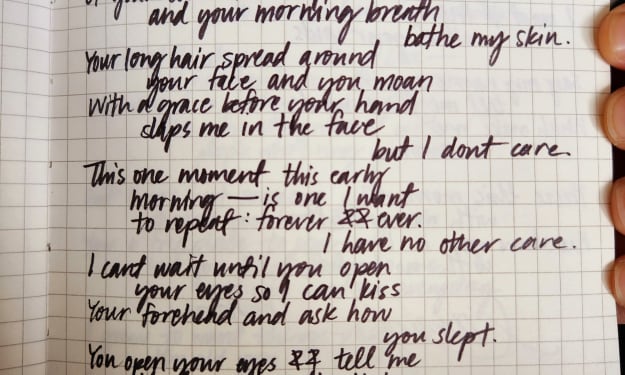 and your morning breath
bathe my skin.
Your long hair spread around
your face and you moan
With a grace before your hand
slaps me in the face
but I dont care.
This one moment this early
morning — is one I want
to repeat: forever & ever.
I have no other care.
I cant wait until you open
your eyes so I can kiss
Your forehead and ask how
you slept.
You open your eyes & tell me